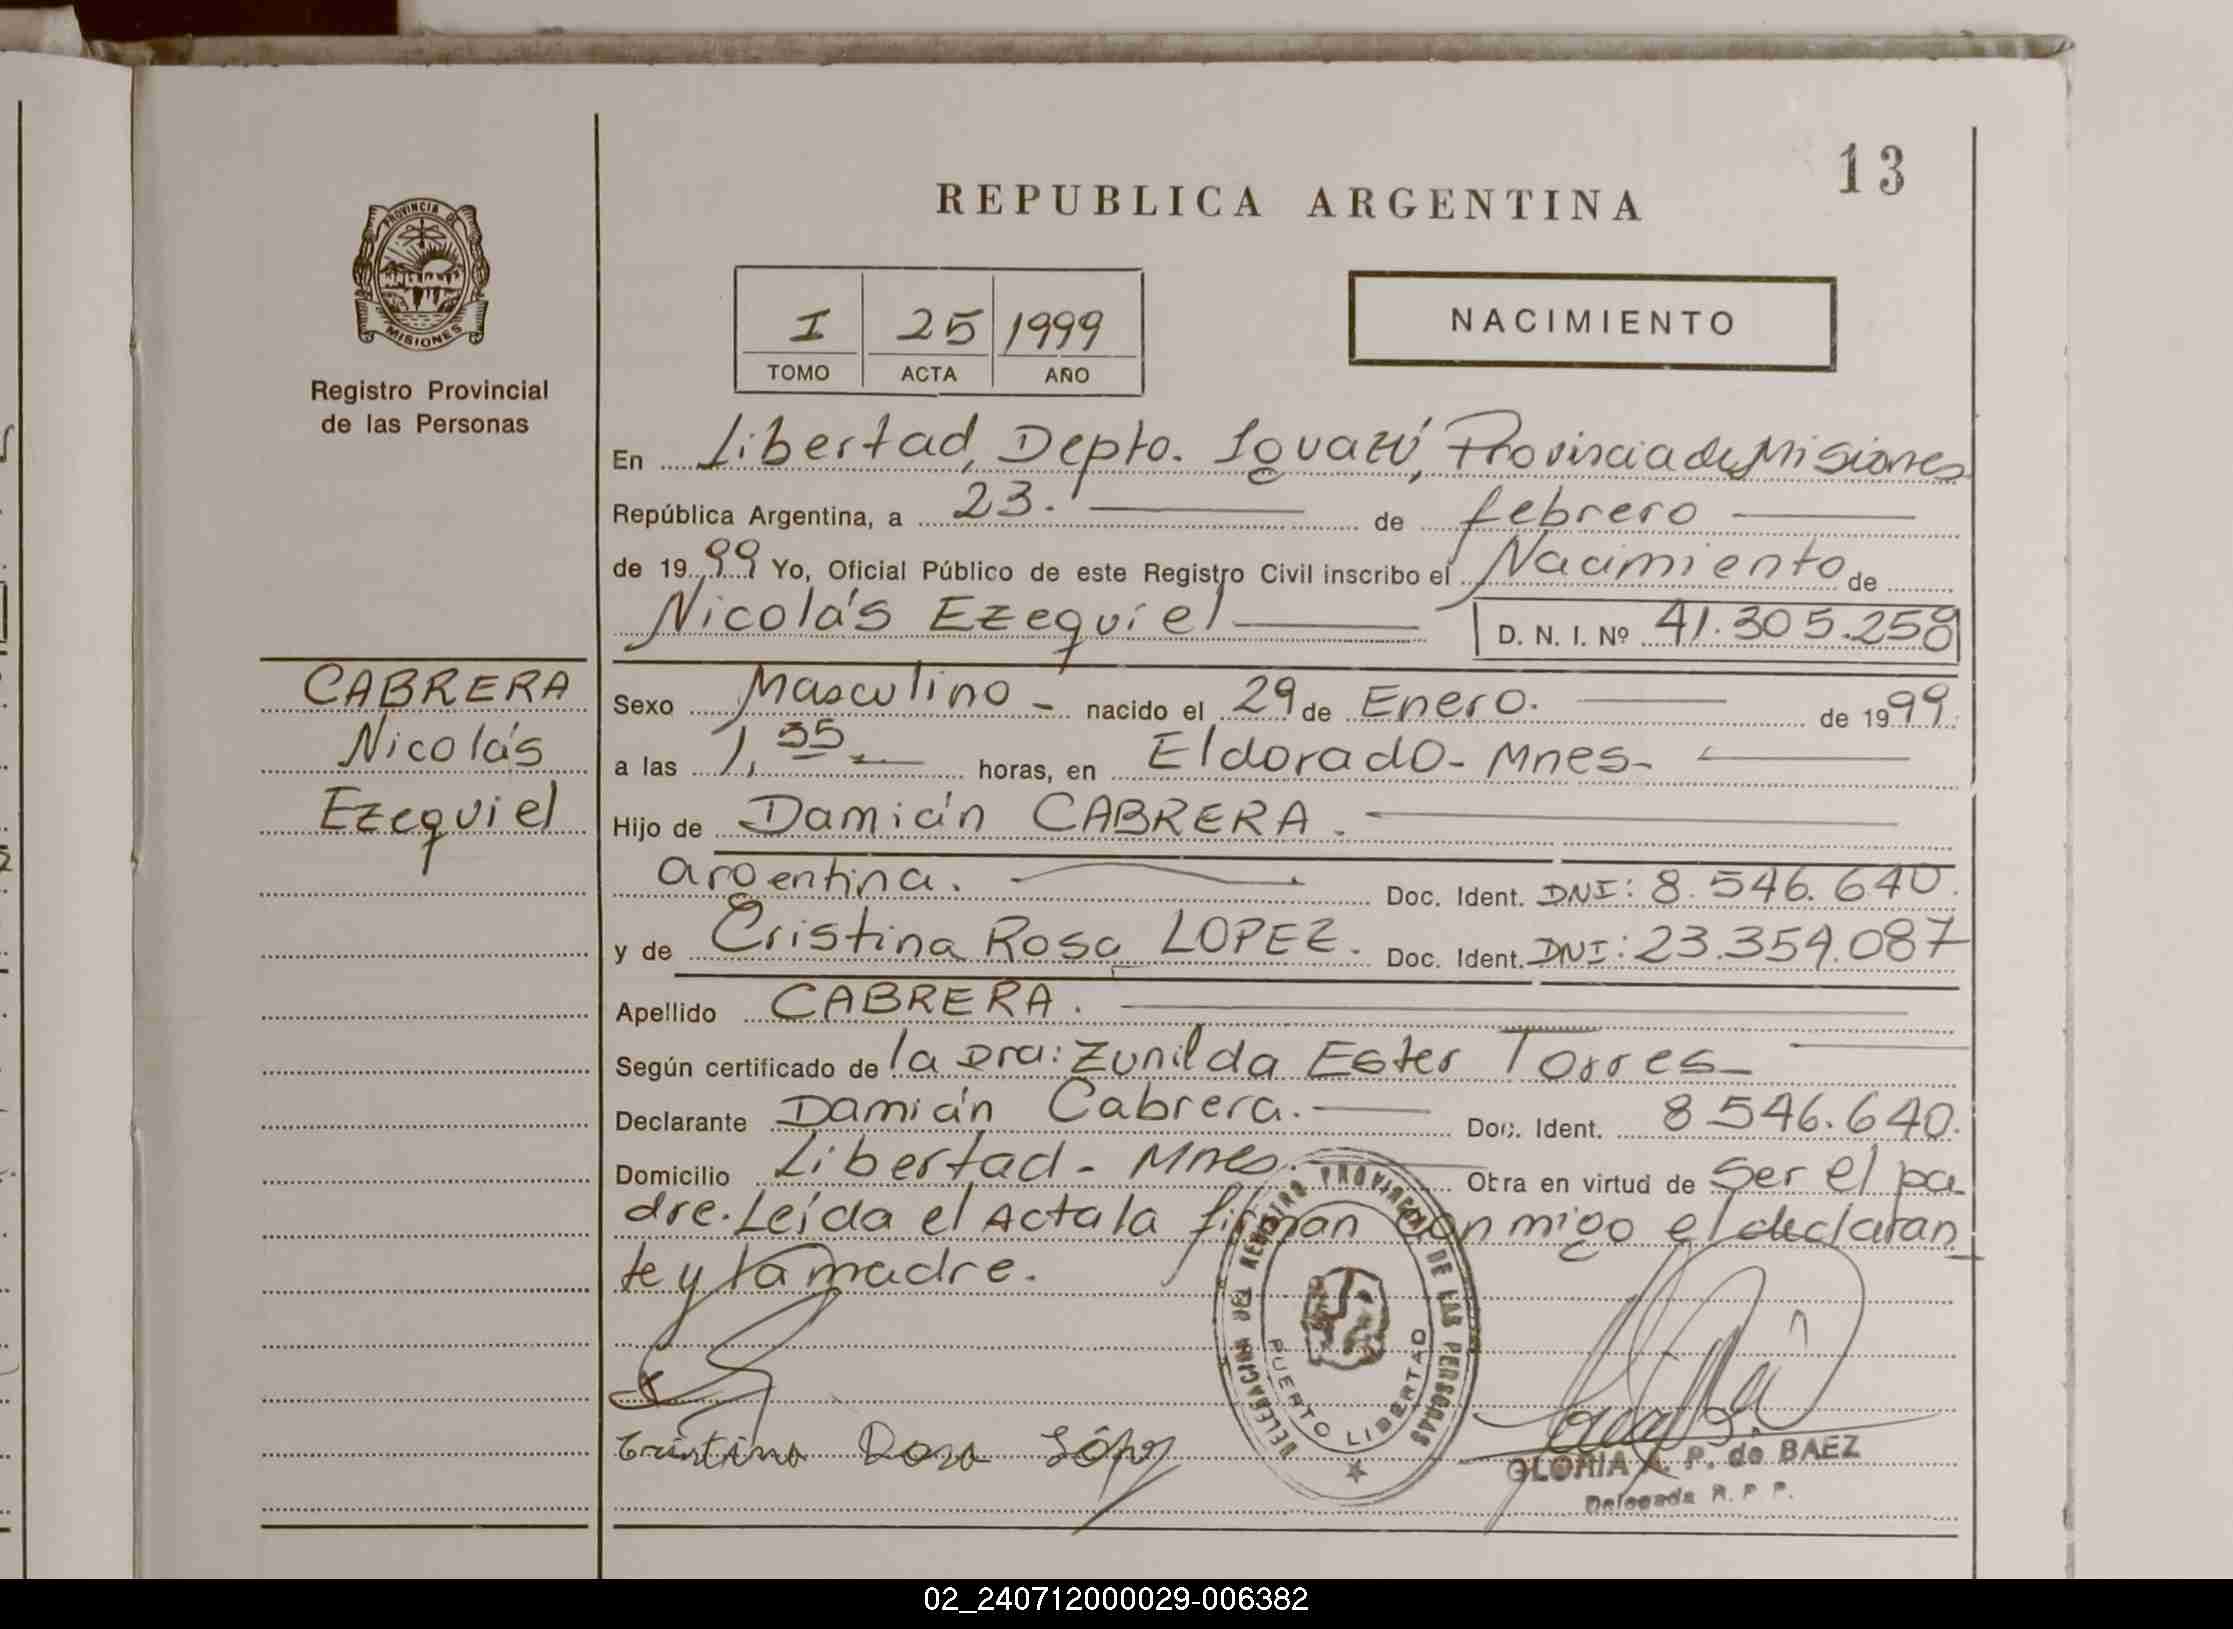 13
REPUBLICA ARGENTINA
PROVINCIA DE
MISIONES
Registro Provincial
de las Personas
I 25 1999
TOMO ACTA AÑO
NACIMIENTO
En Libertad, Depto. Iguazú, Provincia de Misiones
República Argentina, a 23. de febrero
de 1999 Yo, Oficial Público de este Registro Civil inscribo el Nacimiento de
Nicolás Ezequiel D. N. I. Nº 41.305.258
CABRERA
Nicolás
Ezequiel
Sexo Masculino - nacido el 29 de Enero. de 1999.
a las 1,35 horas, en Eldorado - Mnes -
Hijo de Damián CABRERA.
argentina. Doc. Ident. DNI: 8.546.640.
y de Cristina Rosa LOPEZ. Doc. Ident. DNI: 23.359.087
Apellido CABRERA.
Según certificado de la Dra: Zunilda Ester Torres -
Declarante Damián Cabrera. Doc. Ident. 8.546.640.
Domicilio Libertad - Mnes. Obra en virtud de ser el pa
dre. Leída el Acta la firman conmigo el declaran
te y la madre.
DELEGACION DEL REGISTRO PROVINCIAL DE LAS PERSONAS
PUERTO LIBERTAD
Cristina Rosa López
GLORIA A. P. de BAEZ
Delegada R. P. P.
02_240712000029-006382